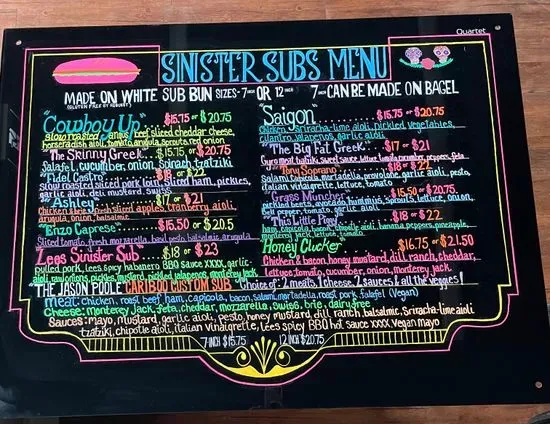 Quartet
SINISTER SUBS MENU
MADE ON WHITE SUB BUN SIZES- 7 INCH OR 12 INCH 7 INCH CAN BE MADE ON BAGEL
(GLUTEN FREE BY REQUEST)
"Cowboy Up" $15.75 or $20.75
slow roasted beef sliced cheddar cheese,
horseradish aioli, tomato, arugula, sprouts, red onion
"The Skinny Greek... $15.75 or $20.75
falafel, cucumber, onion, spinach, tzatziki
"Fidel Castro" $18 or $22
slow roasted sliced pork loin, sliced ham, pickles,
garlic aioli, deli mustard, swiss
"Ashley" $17 or $21
chicken & brie fresh sliced apples, cranberry aioli,
arugula, onion, balsamic
"Enzo Caprese" $15.50 or $20.5
Sliced tomato, fresh mozzarella, basil pesto, balsamic, arugula
Lees Sinister Sub... $18 or $22
pulled pork, lees spicy habanero BBQ sauce xxxx, garlic
aioli, raw onions, pickles, mustard, pickled jalapenos, monterey jack
"Saigon" $15.75 or $20.75
chicken, sriracha-lime aioli, pickled vegetables,
cilantro, jalapenos, garlic aioli
"The Big Fat Greek" $17 or $21
Gyro meat, tzatziki, sweet sauce, lettuce, tomato, cucumber, peppers, feta
"Tony Soprano" $18 or $22
Salami, capicola, mortadella, provolone, garlic aioli, pesto
italian vinaigrette, lettuce, tomato
"Grass Muncher" $15.50 or $20.75
pickled beets, avocado, hummus, sprouts, lettuce, onion,
bell pepper, tomato, garlic aioli
"This Little Piggy" $18 or $22
ham, capicola, bacon, chipotle aioli, banana peppers, pineapple,
monterey jack, lettuce, tomato
Honey Clucker $16.75 or $21.50
Chicken & bacon, honey mustard, dill ranch, cheddar,
lettuce, tomato, cucumber, onion, monterey jack
THE JASON POOLE CARIBOO CUSTOM SUB - Choice of: 2 meats 1 cheese 2 sauces & all the veggies!
Meat: chicken, roast beef, ham, capicola, bacon, salami, mortadella, roast pork, falafel (Vegan)
Cheese: monterey jack, feta, cheddar, mozzarella, swiss, brie, dairy free
Sauces: mayo, mustard, garlic aioli, pesto, honey mustard, dill ranch, balsamic, sriracha-lime aioli
tzatziki, chipotle aioli, italian vinaigrette, lees spicy BBQ hot sauce xxxx vegan mayo
7-INCH $15.75 12 INCH $20.75